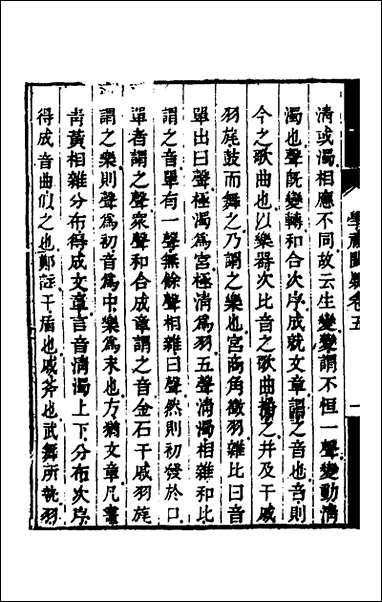 清或濁相應不同故云生變變謂不恒一聲變動清
濁也聲旣變轉和合次序成就文章謂之音也音則
今之歌曲也以樂器次比音之歌曲播之并及干戚
羽旄鼓而舞之乃謂之樂也宮商角徵羽雜比曰音
單出曰聲極濁爲宮極清爲羽五聲清濁相雜和比
謂之音單有一聲無餘聲相雜曰聲然則初發於口
單者謂之聲衆聲和合成章謂之音金石干戚羽旄
謂之樂則聲爲初音爲中樂爲末也方猶文章凡畫
靑黃相雜分布得成文章言音清濁上下分布次序
得成音曲似之也鄭註干盾也戚斧也武舞所執羽
學禮闕疑卷五
一